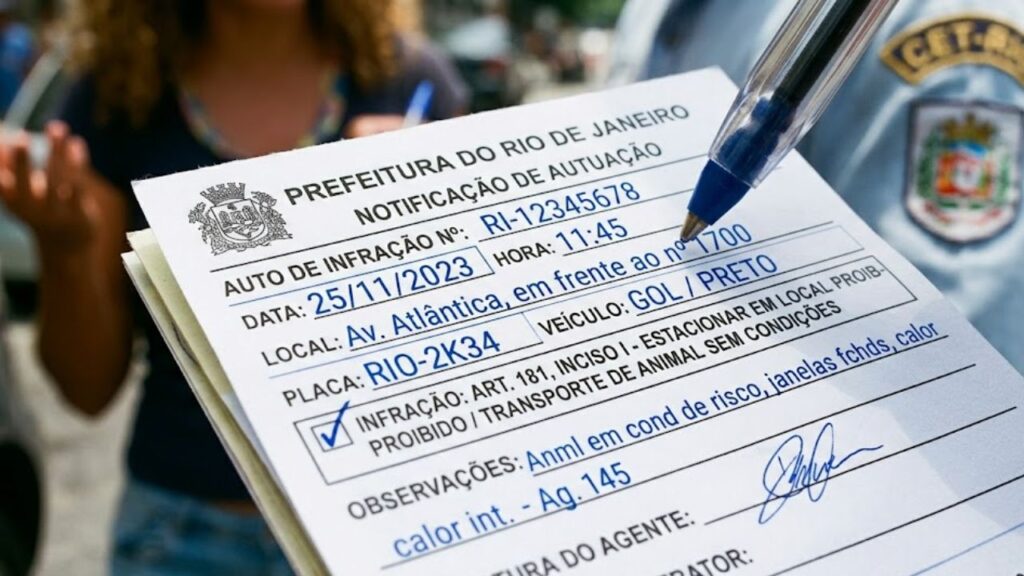 CET-RIO
PREFEITURA DO RIO DE JANEIRO
NOTIFICAÇÃO DE AUTUAÇÃO
AUTO DE INFRAÇÃO Nº: RI-12345678
DATA: 25/11/2023 HORA: 11:45
LOCAL: Av. Atlântica, em frente ao nº 1700
PLACA: RIO-2K34 VEÍCULO: GOL / PRETO
INFRAÇÃO: ART. 181, INCISO I - ESTACIONAR EM LOCAL PROIB-
PROIBIDO / TRANSPORTE DE ANIMAL SEM CONDIÇÕES
OBSERVAÇÕES: Anml em cond de risco, janelas fchds, calor
calor int. - Ag. 145
TURA DO AGENTE:
RATOR: